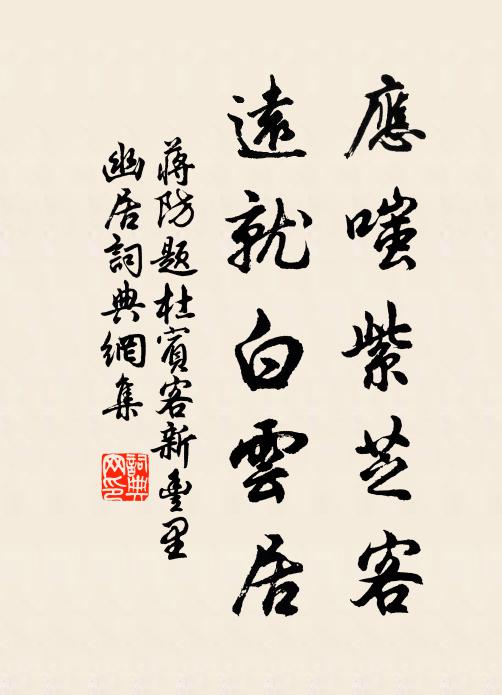 應嗤紫芝客
遠就白雲居
蔣防題杜賓客新豐里
幽居詞典網集
詞典網印